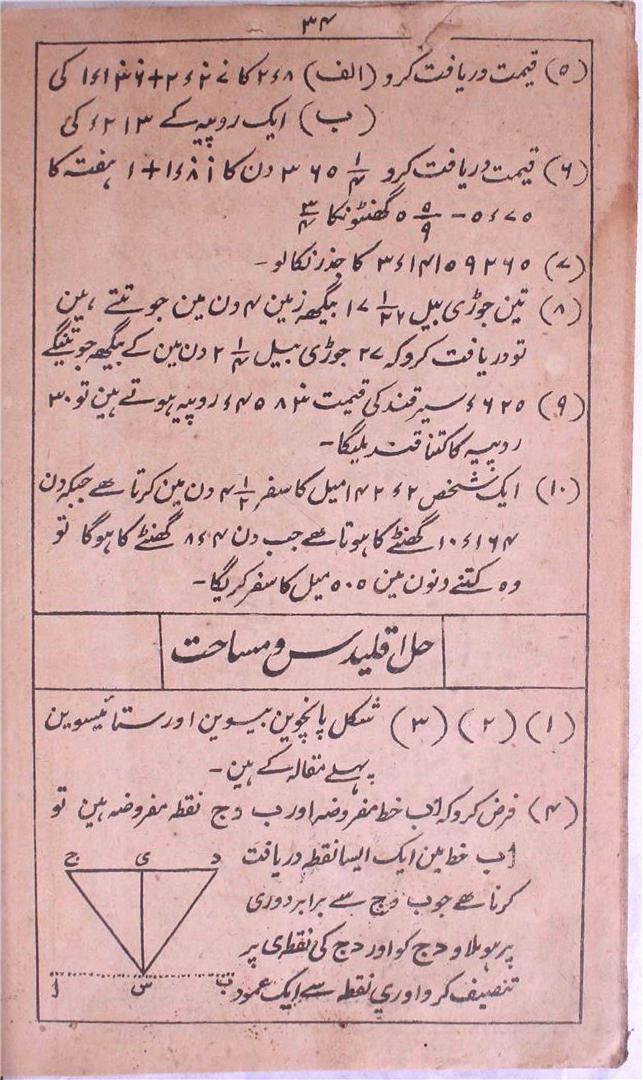 ۳۴
(۵) قیمت دریافت کرو (الف) ۲ء۸ کا
(ب) ایک روپیہ کے ۲۱۳ء کی
(۶) قیمت دریافت کرو ۳۶۵ ۱/۴ دن کا ۱ + ہفتہ کا
۵ ۵/۹ گھنٹونکا ۳/۴
(۷) ۳ء۱۴۱۵۹۲۶۵ کا جذر نکالو ۔
(۸) تین جوڑی بیل ۱۷ بیگھہ زمین ۴ دن مین جوتتے ہین
تو دریافت کرو کہ ۲۷ جوڑی بیل ۲ ۱/۴ دن مین کے بیگھہ جوتینگے
(۹) ۶۲۵ء سیر قند کی قیمت روپیہ ہوتے ہین تو ۳۰
روپیہ کا کتنا قند ملیگا ۔
(۱۰) ایک شخص میل کا سفر ۴ ۱/۲ دن مین کرتا ہے جبکہ دن
۱۰ء۱۶۴ گھنٹے کا ہوتا ہے جب دن ۸ء۴ گھنٹے کا ہوگا تو
وہ کتنے دنون مین ۵۰۵ میل کا سفر کریگا ۔
حل اقلیدس و مساحت
(۱) (۲) (۳) شکل پانچوین بیسوین اور ستائیسوین
پہلے مقالہ کے ہین ۔
(۴) فرض کرو کہ اب خط مفروضہ اور ب د ج نقطہ مفروضہ ہین تو
اب خط مین ایک ایسا نقطہ دریافت
کرنا ہے جو ب و ج سے برابر دوری
پر ہو ملاو د ج کو اور د ج کی نقطہ ی پر
تنصیف کرو اور ی نقطہ سے ایک عمود
ج ی د
ا س ب